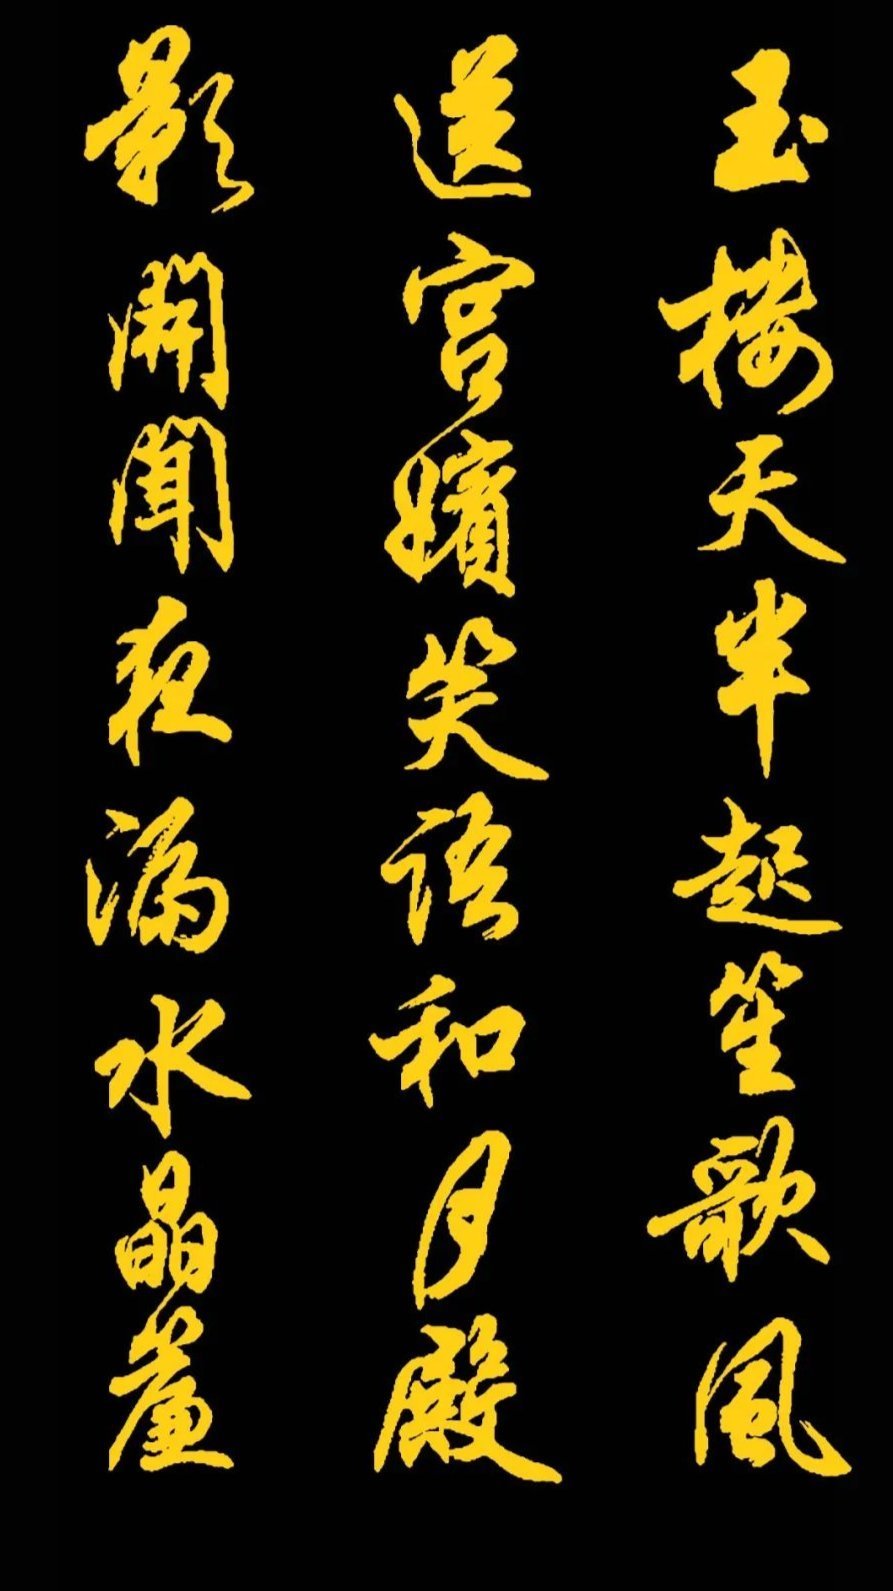 玉楼天半起笙歌風
送宫嬪笑語和月殿
影開聞夜漏水晶簾